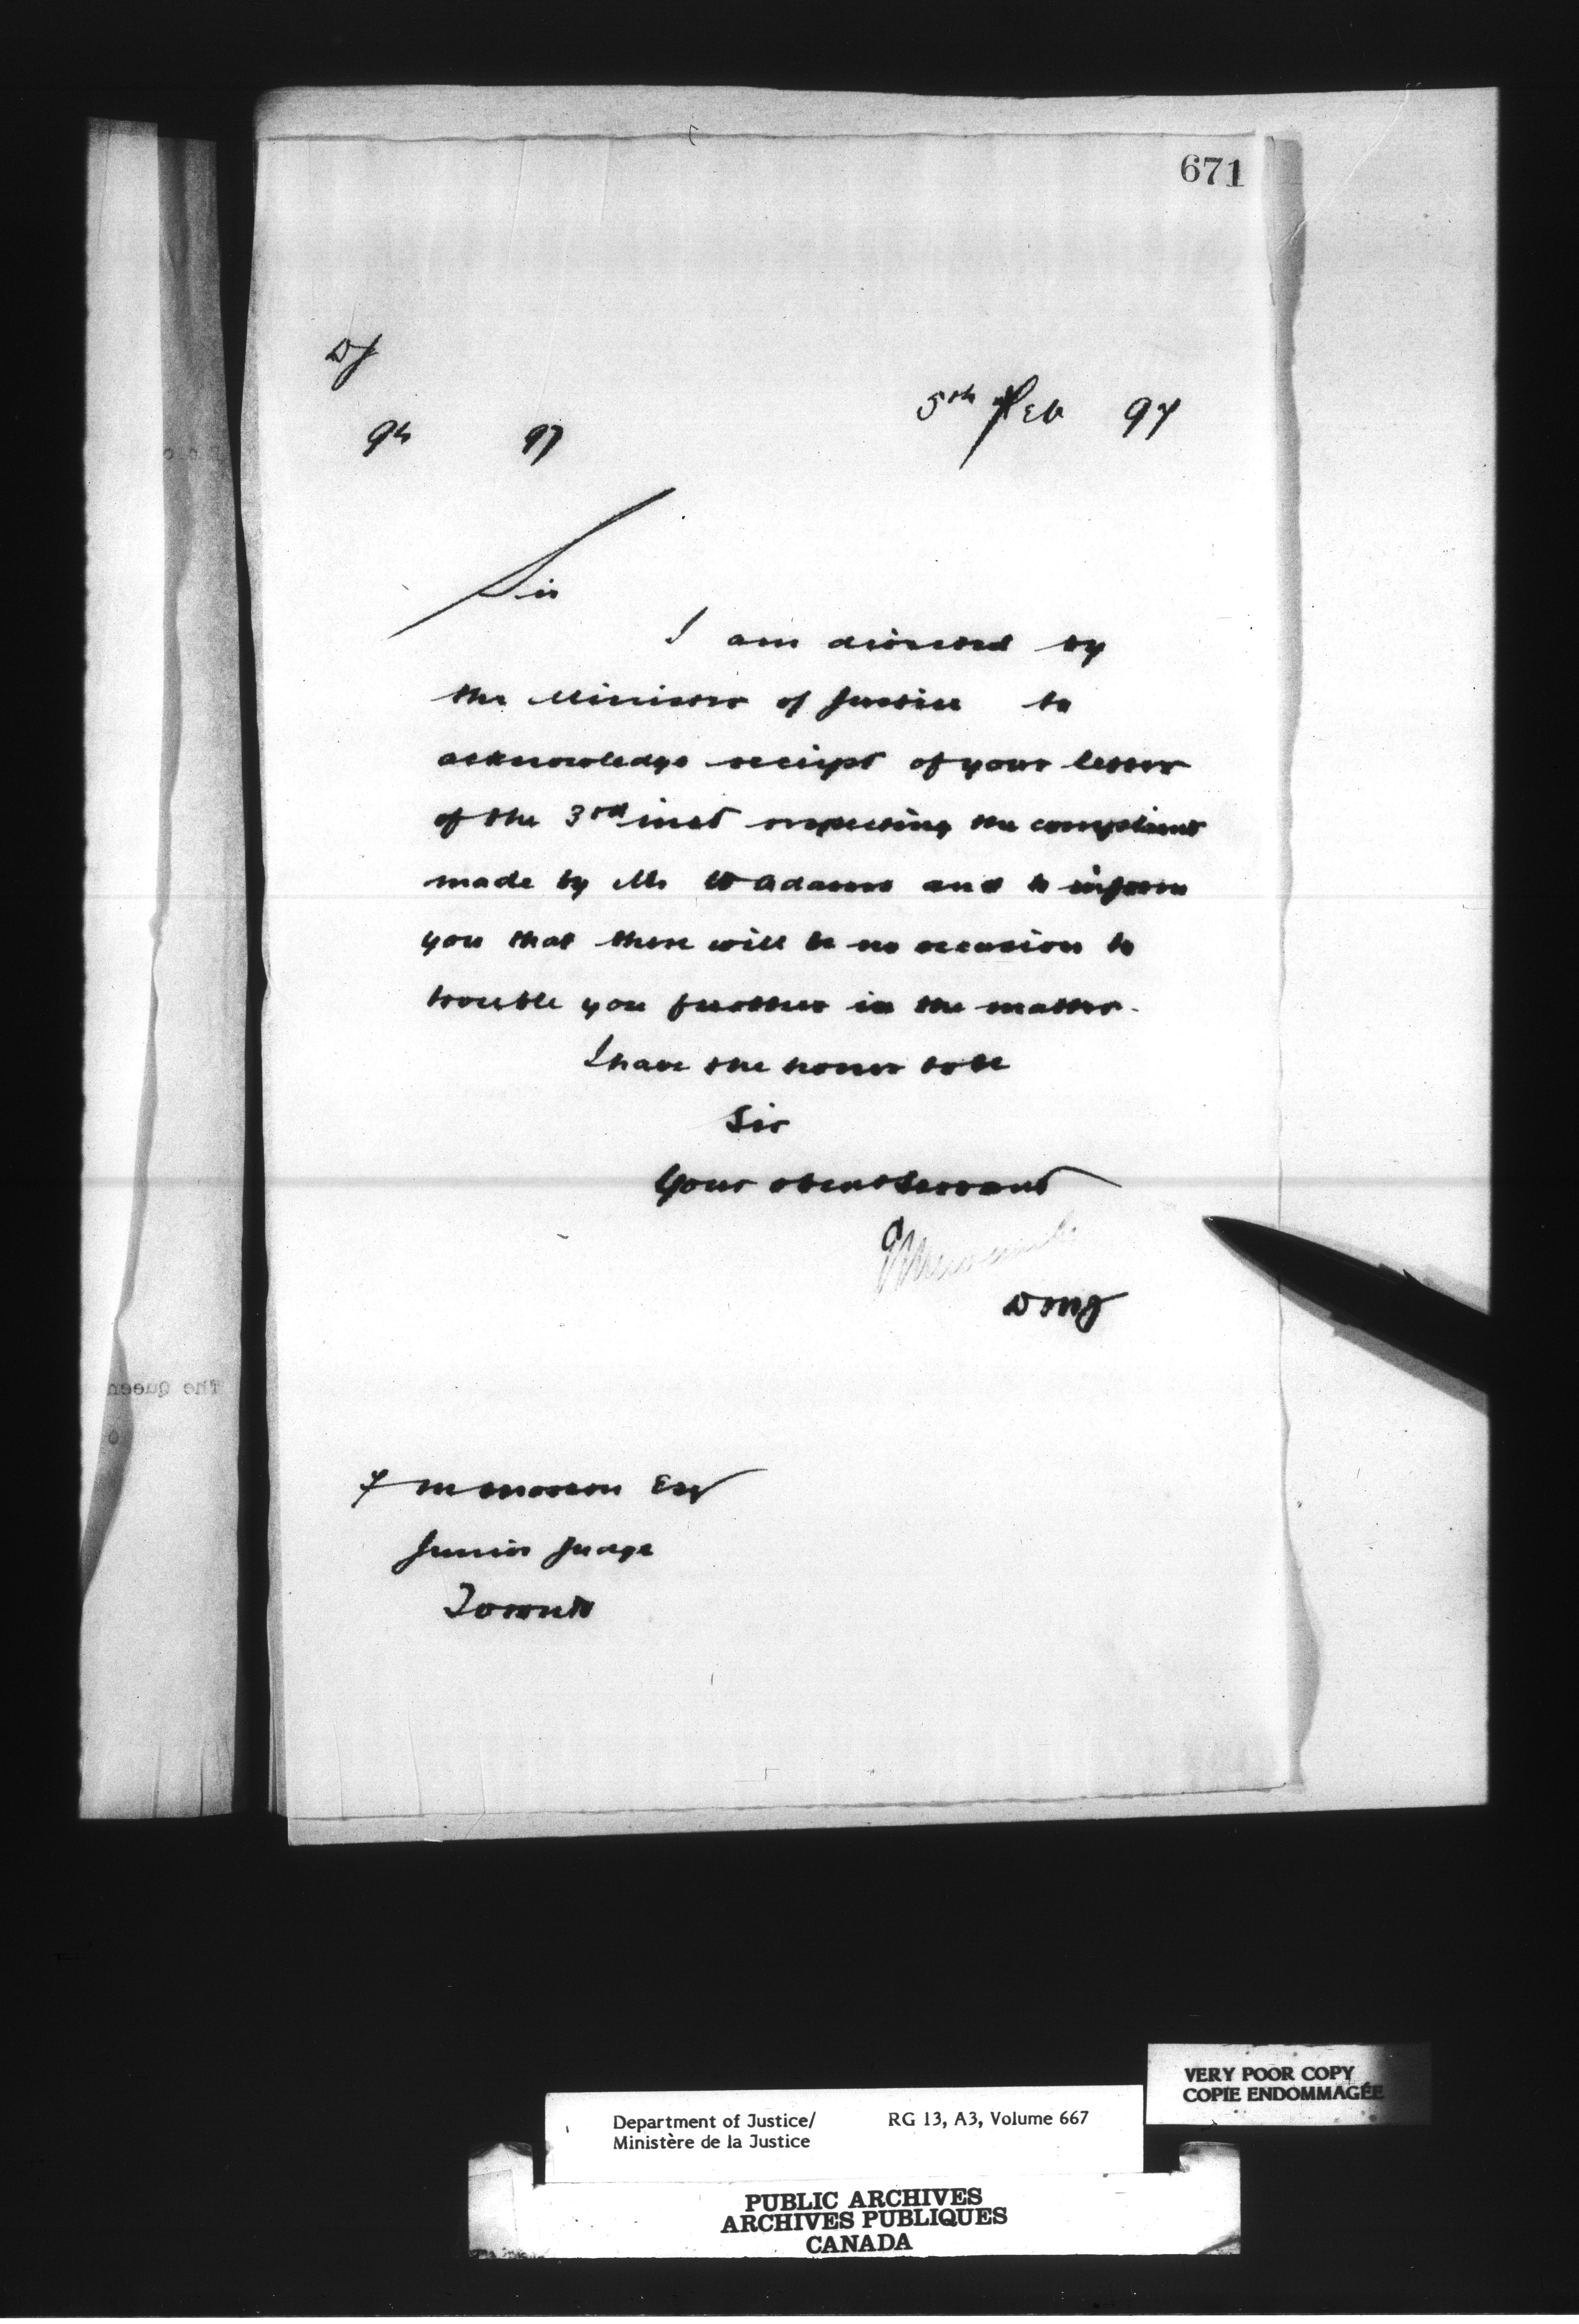 671
DJ
5th Feb 97
97
Sir
I am directed by
the Minister of Justice to
acknowledge receipt of your letter
of the 3rd inst respecting the complaint
made by Mr W Adams and to inform
you that there will be no occasion to
trouble you further in the matter.
I have the honor to be
Sir
Your obent Servant
DMJ
F M Morson Esq
Junior Judge
Toronto
The Queen
VERY POOR COPY
COPIE ENDOMMAGÉE
Department of Justice/ RG 13, A3, Volume 667
Ministère de la Justice
PUBLIC ARCHIVES
ARCHIVES PUBLIQUES
CANADA